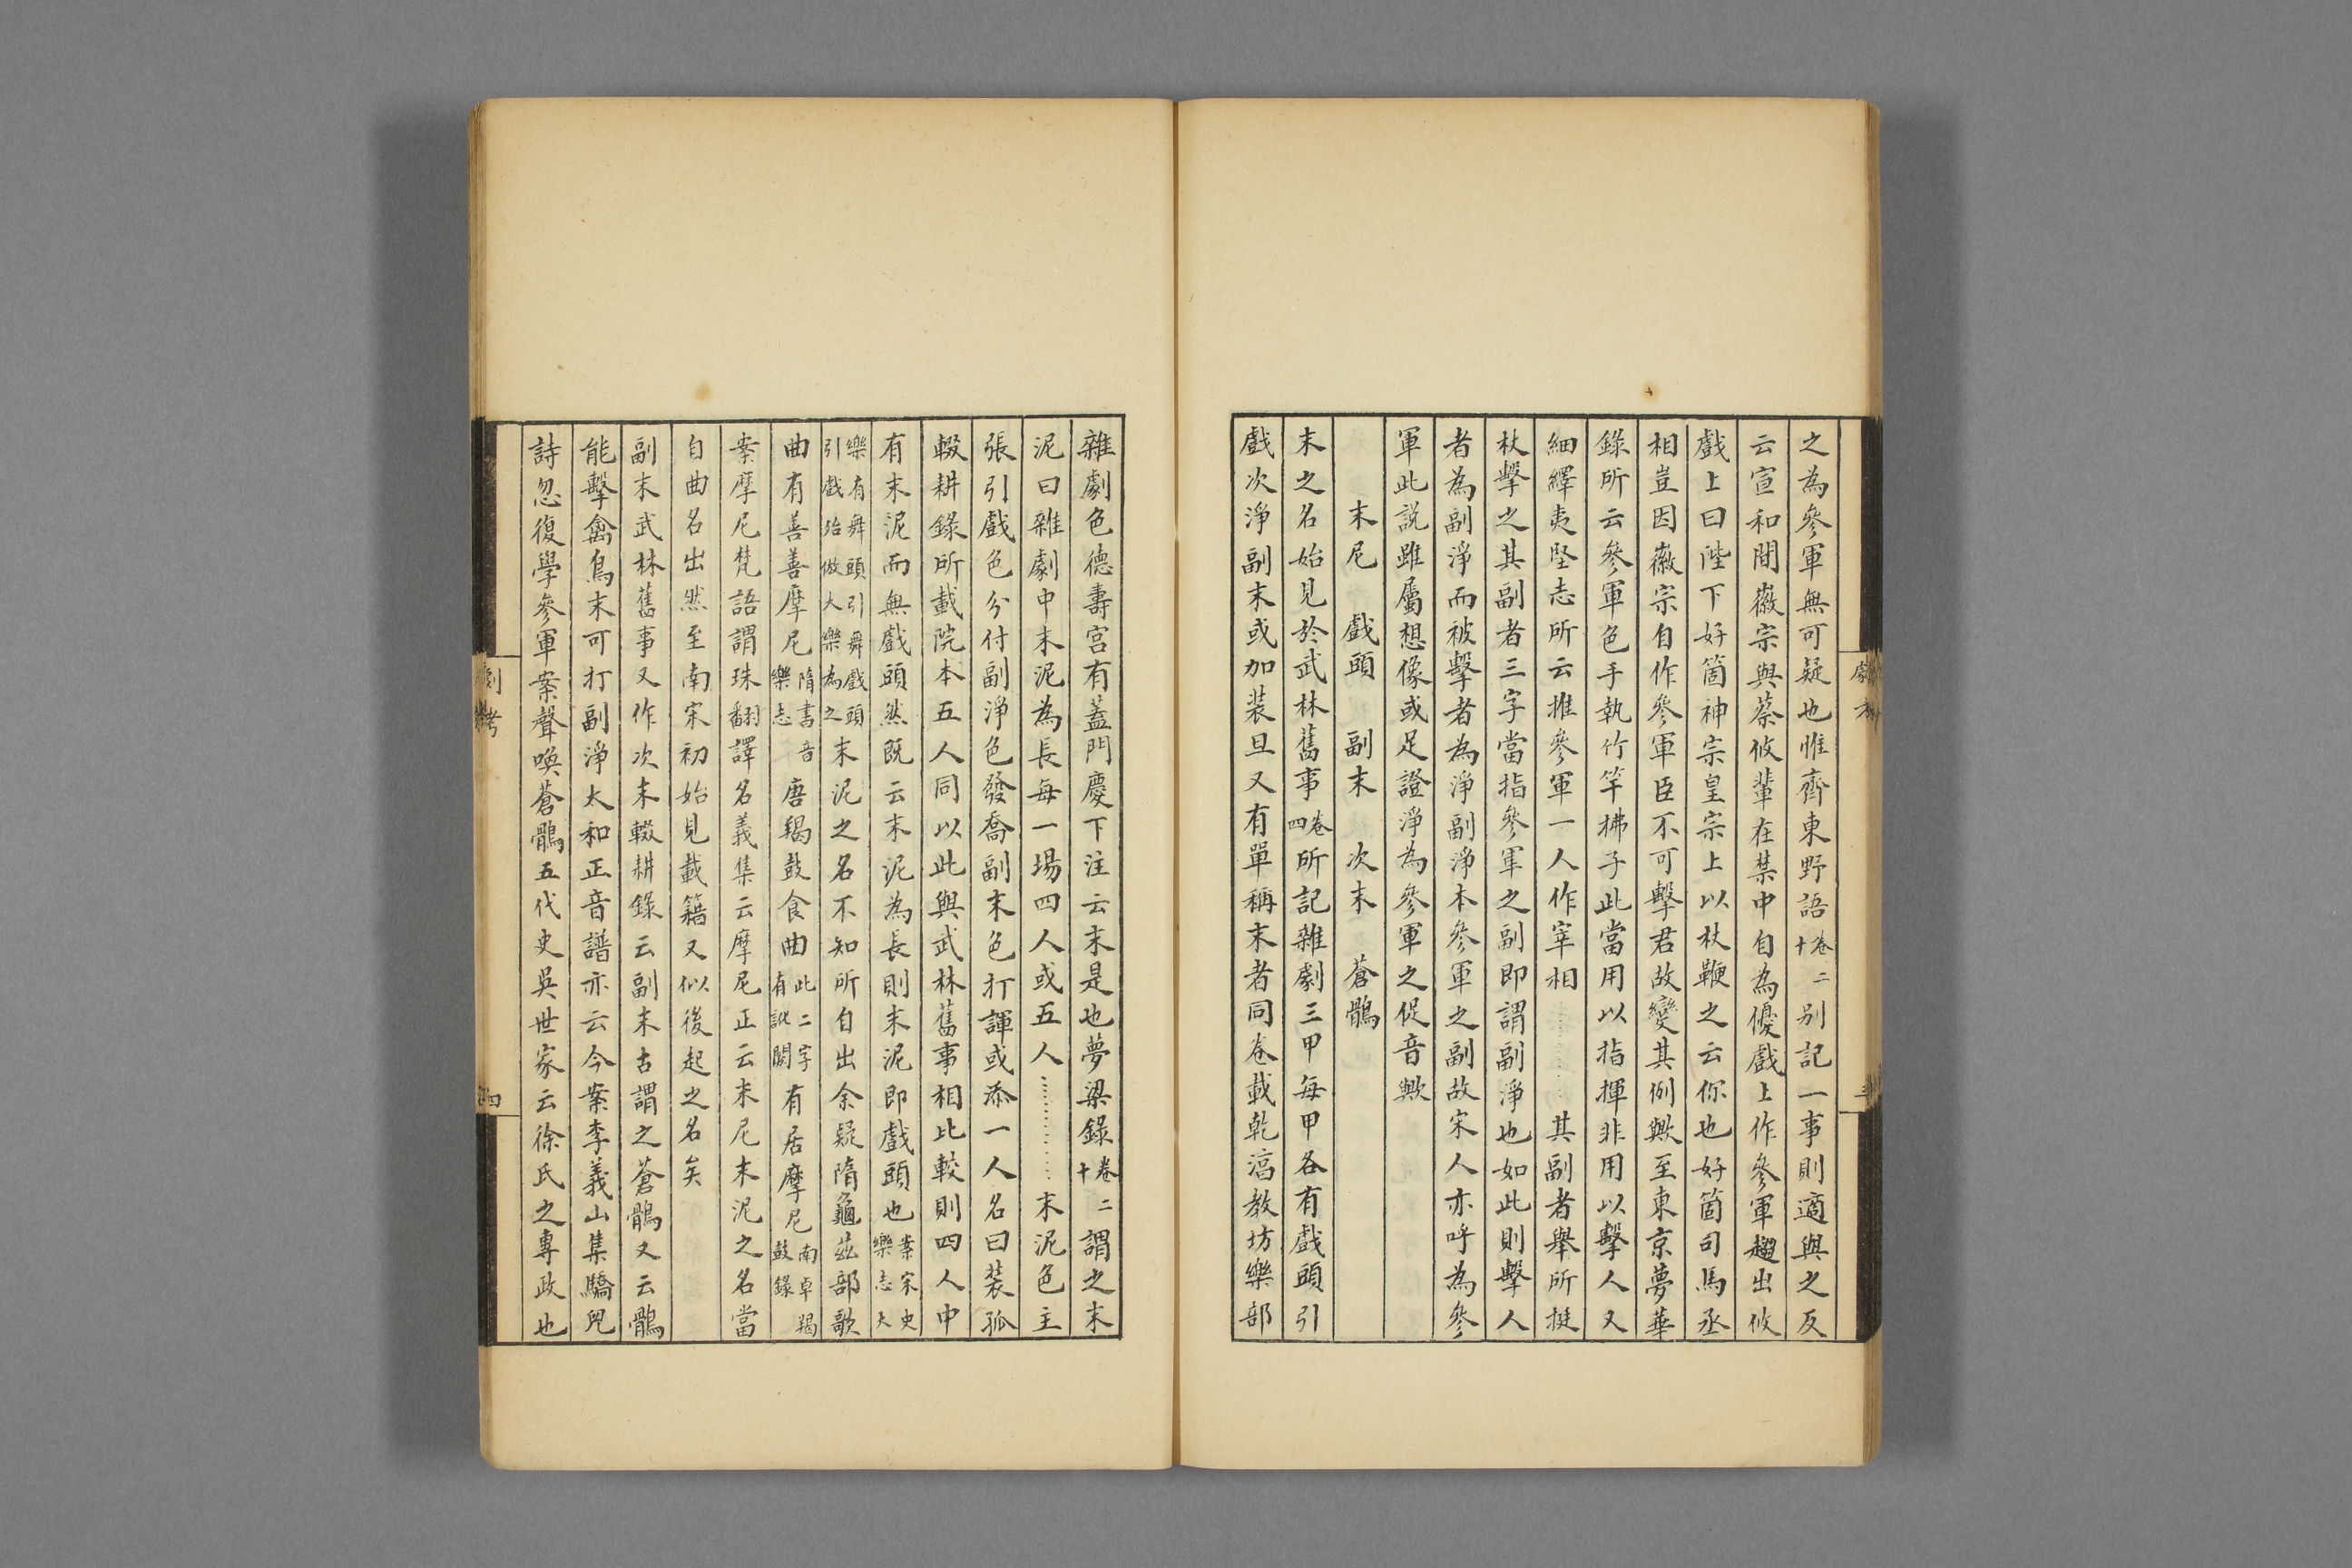 之為參軍無可疑也惟齊東野語卷二十別記一事則適與之反
云宣和間徽宗與蔡攸輩在禁中自為優戲上作參軍趨出攸
戲上曰陛下好箇神宗皇宗上以杖鞭之云你也好箇司馬丞
相豈因徽宗自作參軍臣不可擊君故變其例歟至東京夢華
錄所云參軍色手執竹竿拂子此當用以指揮非用以擊人又
細繹夷堅志所云推參軍一人作宰相………其副者舉所挺
杖擊之其副者三字當指參軍之副即謂副淨也如此則擊人
者為副淨而被擊者為淨副淨本參軍之副故宋人亦呼為參
軍此說雖屬想像或足證淨為參軍之促音歟
末尼 戲頭 副末 次末 蒼鶻
末之名始見於武林舊事卷四所記雜劇三甲每甲各有戲頭引
戲次淨副末或加裝旦又有單稱末者同卷載乾淳教坊樂部
雜劇色德壽宮有蓋門慶下注云末是也夢粱錄卷二十謂之末
泥曰雜劇中末泥為長每一場四人或五人………末泥色主
張引戲色分付副淨色發喬副末色打諢或添一人名曰裝孤
輟耕錄所載院本五人同以此與武林舊事相比較則四人中
有末泥而無戲頭然既云末泥為長則末泥即戲頭也案宋史樂志大
樂有舞頭引舞戲頭引戲殆倣大樂為之末泥之名不知所自出余疑隋龜茲部歌
曲有善善摩尼隋書音樂志唐羯鼓食曲此二字有訛闕有居摩尼南卓羯鼓錄
案摩尼梵語謂珠翻譯名義集云摩尼正云末尼末泥之名當
自曲名出然至南宋初始見載籍又似後起之名矣
副末武林舊事又作次末輟耕錄云副末古謂之蒼鶻又云鶻
能擊禽鳥末可打副淨太和正音譜亦云今案李義山集驕兒
詩忽復學參軍案聲喚蒼鶻五代史吳世家云徐氏之專政也
劇考
四